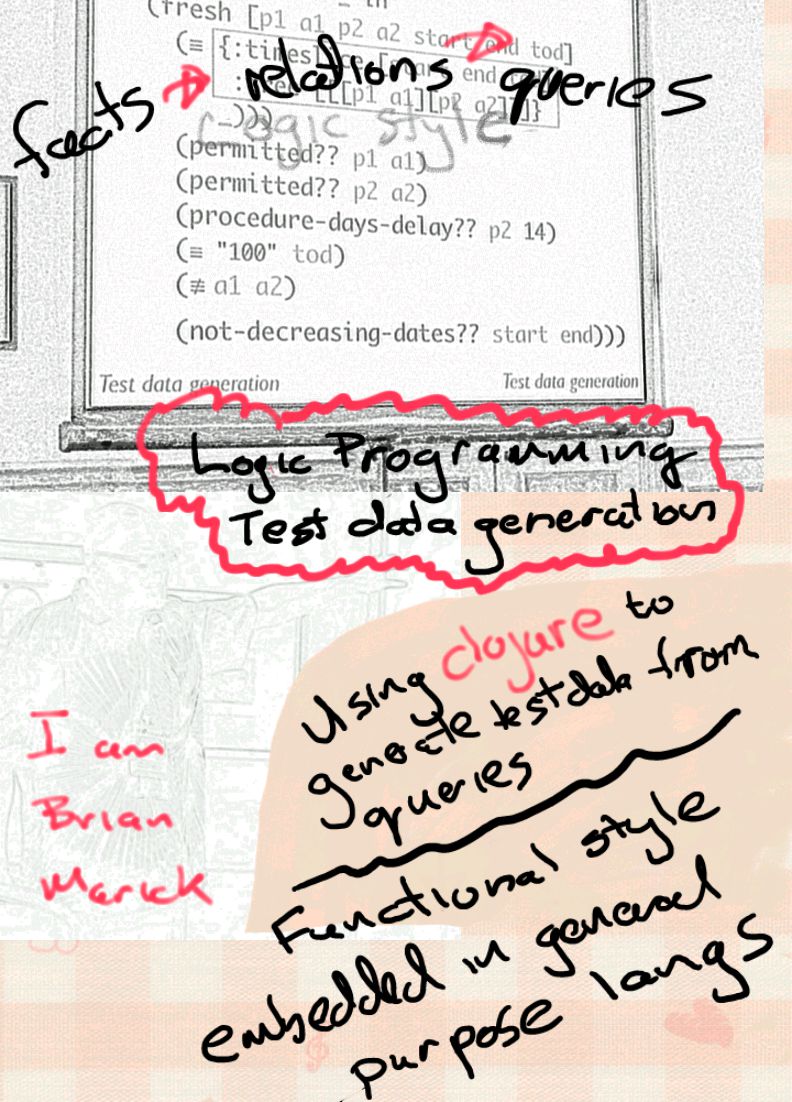 (fresh [p1 a1 p2 a2 start end tod]
(≡ {:times
end
[[[p1 a1][p2 a2]
]}
_)))
facts → relations → queries
Logic style
(permitted?? p1 a1)
(permitted?? p2 a2)
(procedure-days-delay?? p2 14)
(≡ "100" tod)
(≢ a1 a2)
(not-decreasing-dates?? start end)))
Test data generation
Test data generation
Logic Programming
Test data generation
Using clojure to
generate test data from
queries
I am
Brian
Marick
Functional style
embedded in general
purpose langs